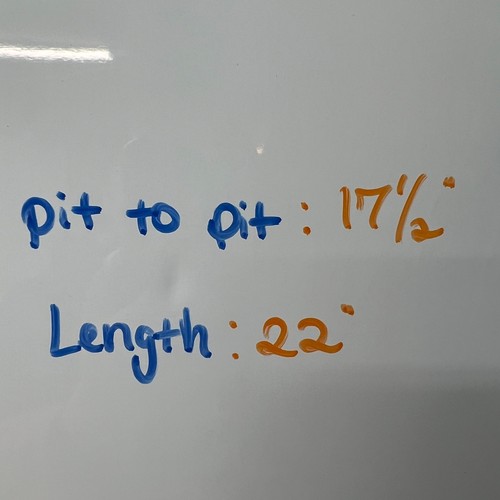 pit to pit : 17 1/2"
Length : 22"